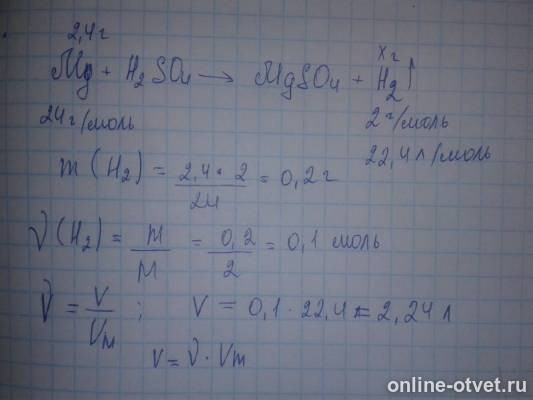 2,4 г                                        х г
Mg + H₂SO₄ → MgSO₄ + H₂↑
24 г/моль                              2 г/моль
22,4 л/моль
m (H₂) = 2,4 · 2 / 24 = 0,2 г
ν (H₂) = m / M = 0,2 / 2 = 0,1 моль
ν = V / Vm ;   V = 0,1 · 22,4 = 2,24 л
V = ν · Vm
online-otvet.ru